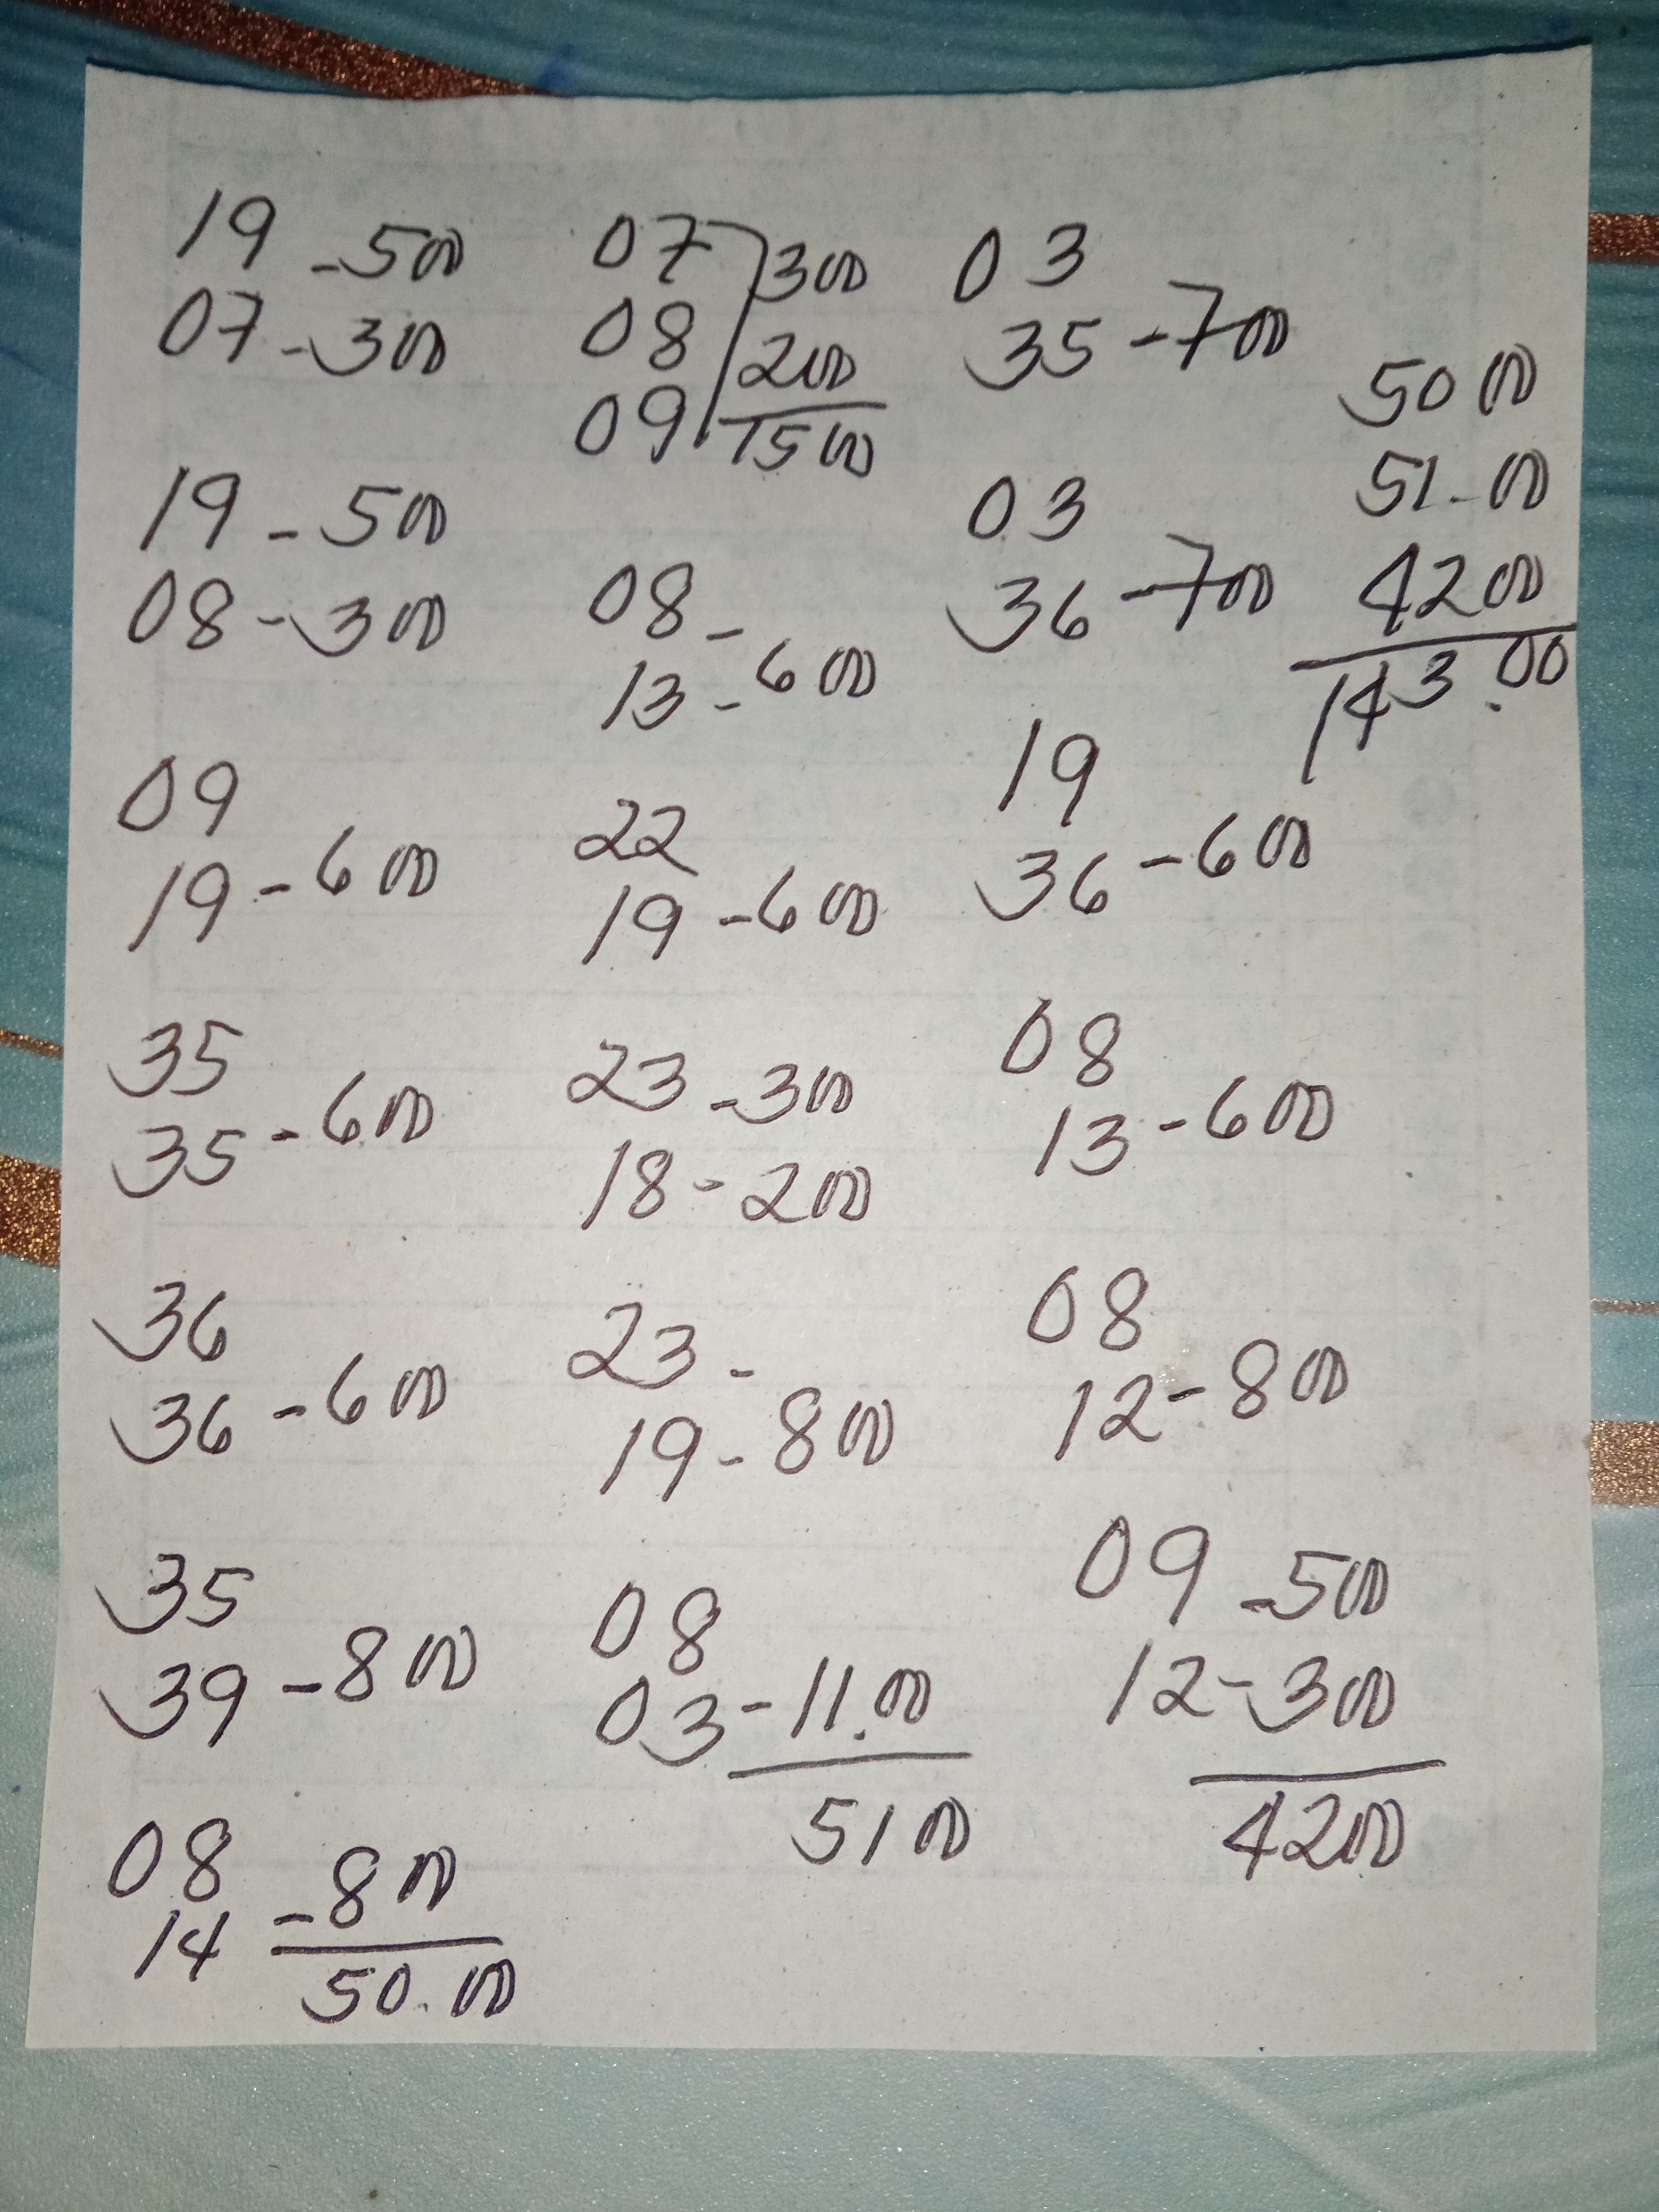 19 - 500
07 - 300
19 - 500
08 - 300
09
19 - 600
35
35 - 600
36
36 - 600
35
39 - 800
08
14 - 800
50.00
07 300
08 200
09 1500
08 -
13 - 600
22
19 - 600
23 - 300
18 - 200
23 -
19 - 800
08
03 - 11.00
5100
03
35 - 700
03
36 - 700
19
36 - 600
08
13 - 600
08
12 - 800
09 - 500
12 - 300
4200
5000
51-00
4200
143.00